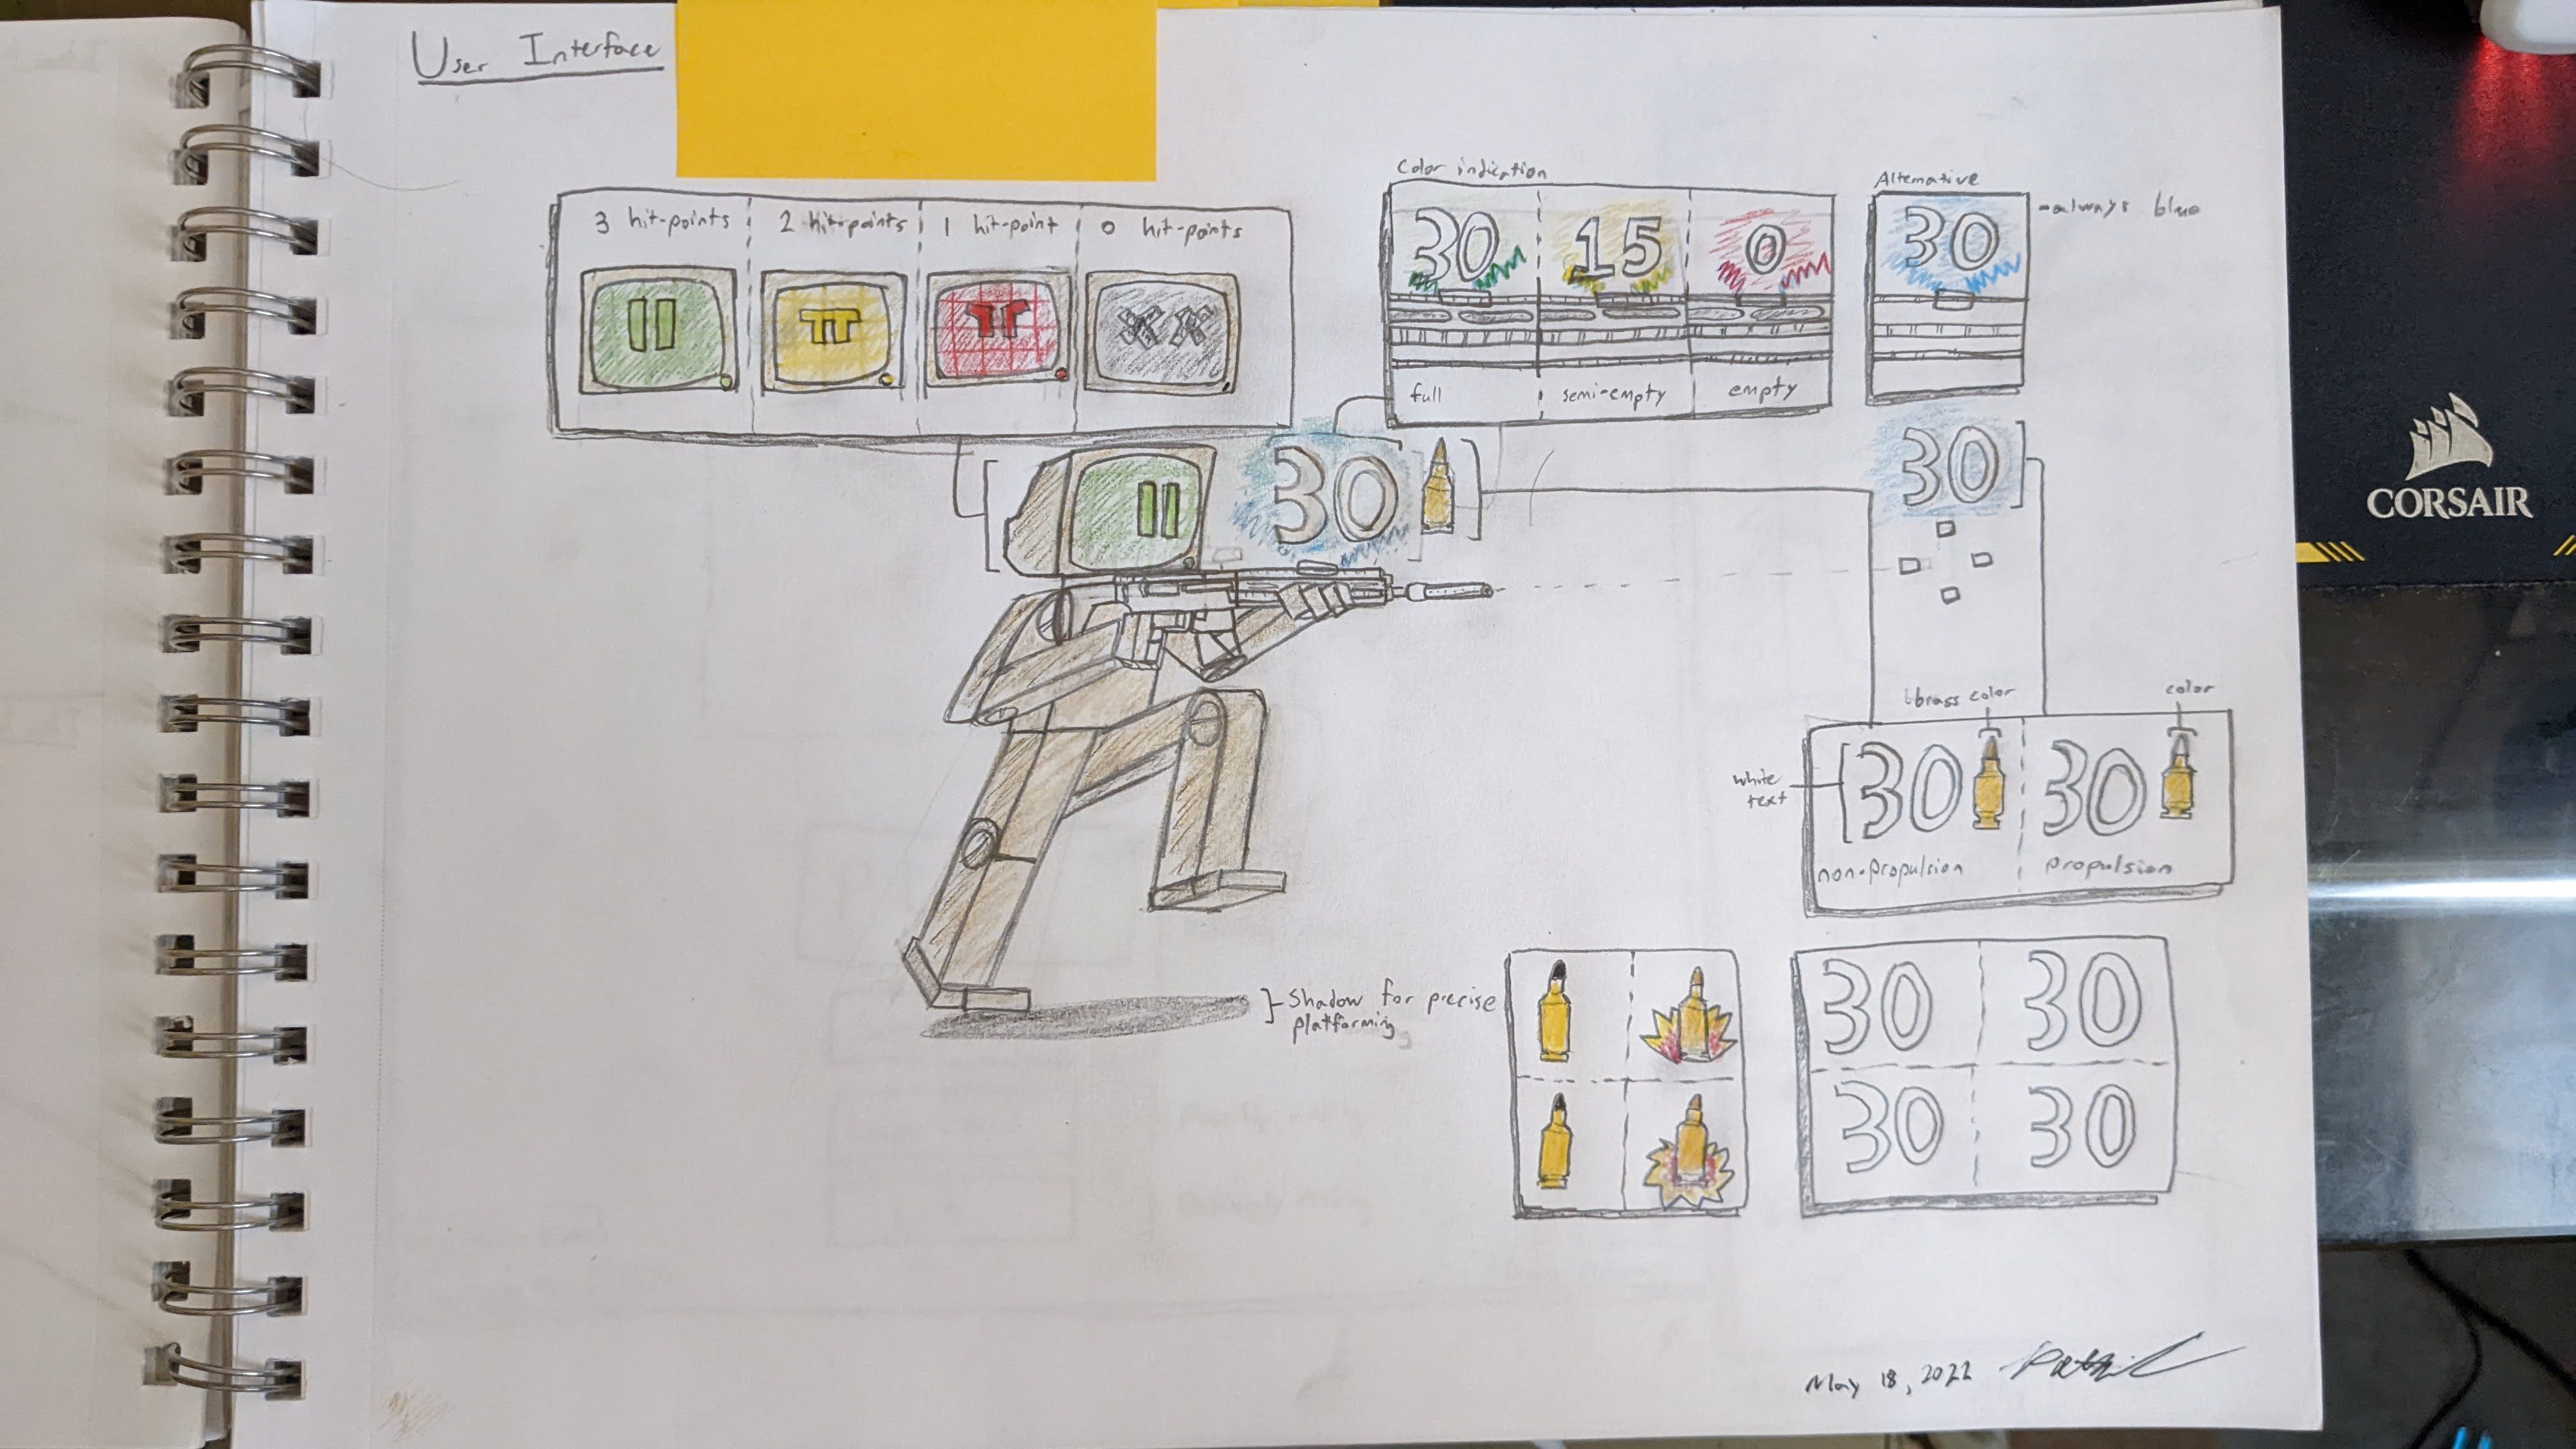 User Interface
3 hit-points
2 hit-points
1 hit-point
0 hit-points
Color indication
30
15
0
full
semi-empty
empty
Alternative
30
-always blue
30
30
CORSAIR
brass color
color
white
text
30
30
non-propulsion
propulsion
Shadow for precise
platforming
30
30
30
30
May 18, 2022